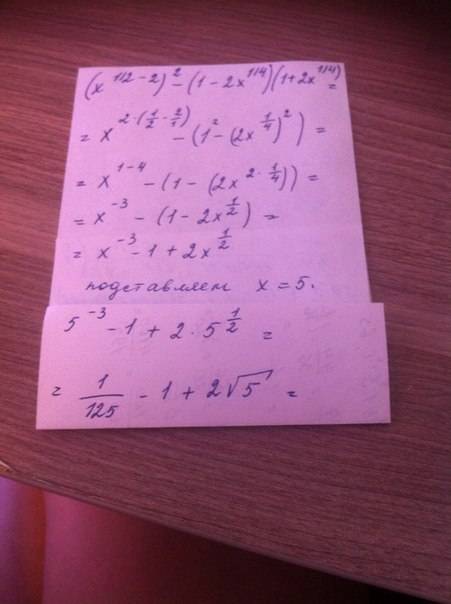 (x^{1/2 - 2})^2 - (1 - 2x^{1/4})(1 + 2x^{1/4}) =
= x^{2·(1/2 - 2/1)} - (1^2 - (2x^{1/4})^2) =
= x^{1-4} - (1 - (2x^{2·1/4})) =
= x^{-3} - (1 - 2x^{1/2}) =
= x^{-3} - 1 + 2x^{1/2}
подставляем x = 5.
5^{-3} - 1 + 2·5^{1/2} =
= 1/125 - 1 + 2√5 =